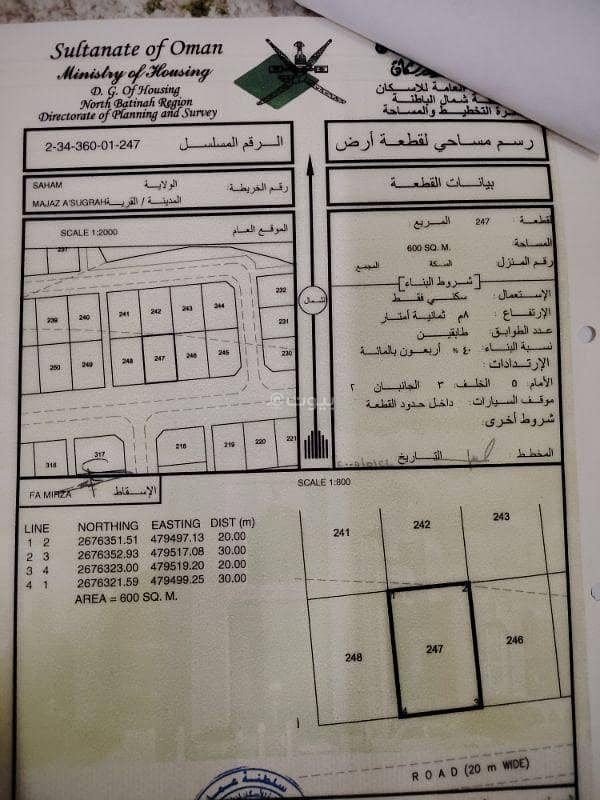 Sultanate of Oman
Ministry of Housing
D. G. Of Housing
North Batinah Region
Directorate of Planning and Survey
العامة للاسكان
شمال الباطنة
التخطيط والمساحة
2-34-360-01-247 الرقم المسلسل
رسم مساحي لقطعة أرض
SAHAM الولاية
MAJAZ A'SUGRAH المدينة / القرية
رقم الخريطة:
بيانات القطعة
SCALE 1:2000 الموقع العام
قطعة: 247 المربع
المساحة: 600 SQ. M.
رقم المنزل السكة المجمع
شروط البناء
الإستعمال: سكني فقط
الإرتفاع: ٨م ثمانية أمتار
عدد الطوابق: طابقين
نسبة البناء: ٤٠ % أربعون بالمائة
الإرتدادات:
الأمام: ٥ الخلف: ٣ الجانبان ٢
موقف السيارات: داخل حدود القطعة
شروط أخرى:
المخطط: التاريخ
الشمال
237
232
239 240 241 242 243 244
231
250 249 248 247 246 245 230
بيوت
318 317 218 219 220 221
FA MIRZA الإسقاط
SCALE 1:800
LINE NORTHING EASTING DIST (m)
1 2 2676351.51 479497.13 20.00
2 3 2676352.93 479517.08 30.00
3 4 2676323.00 479519.20 20.00
4 1 2676321.59 479499.25 30.00
AREA = 600 SQ. M.
241 242 243
1 2
248 247 246
4 3
ROAD (20 m WIDE)
سلطنة عمان